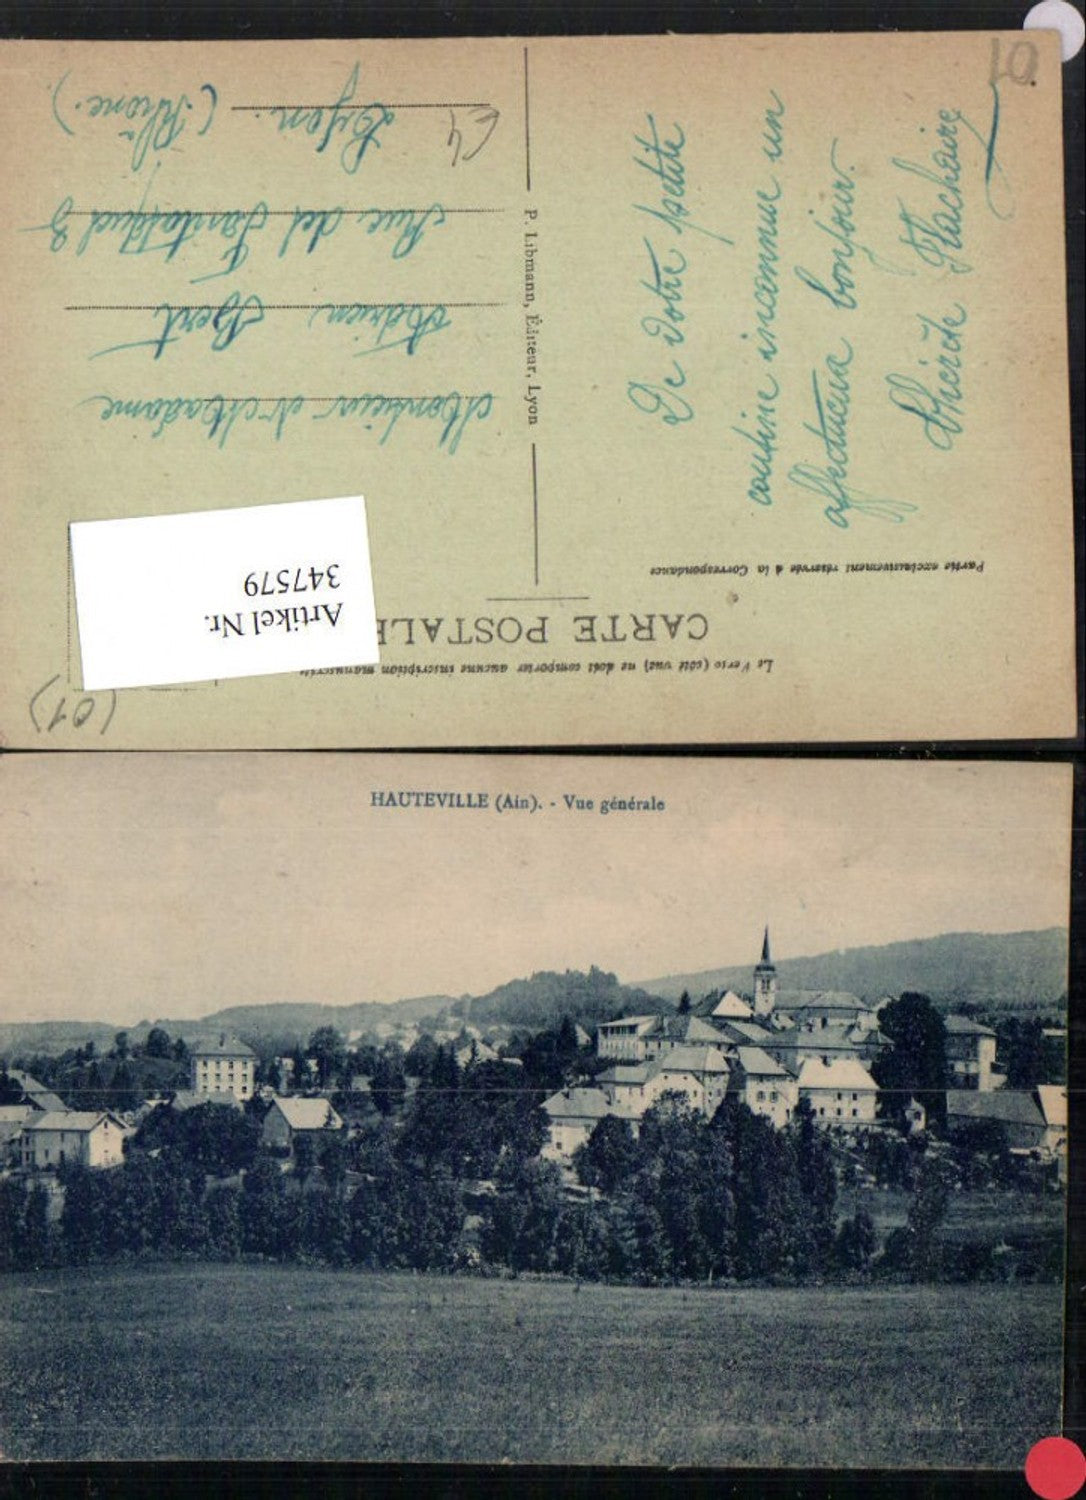 Le Verso (côté vue) ne doit comporter aucune inscription manuscrite
CARTE POSTALE
Partie exclusivement réservée à la Correspondance
De votre petite
cousine inconnue un
affectueux bonjour.
Flachaire
P. Libmann, Éditeur, Lyon
Monsieur et Madame
Adrien Bert
Rue
Lyon.
(Rhône.)
Artikel Nr.
347579
(01)
01
HAUTEVILLE (Ain). - Vue générale